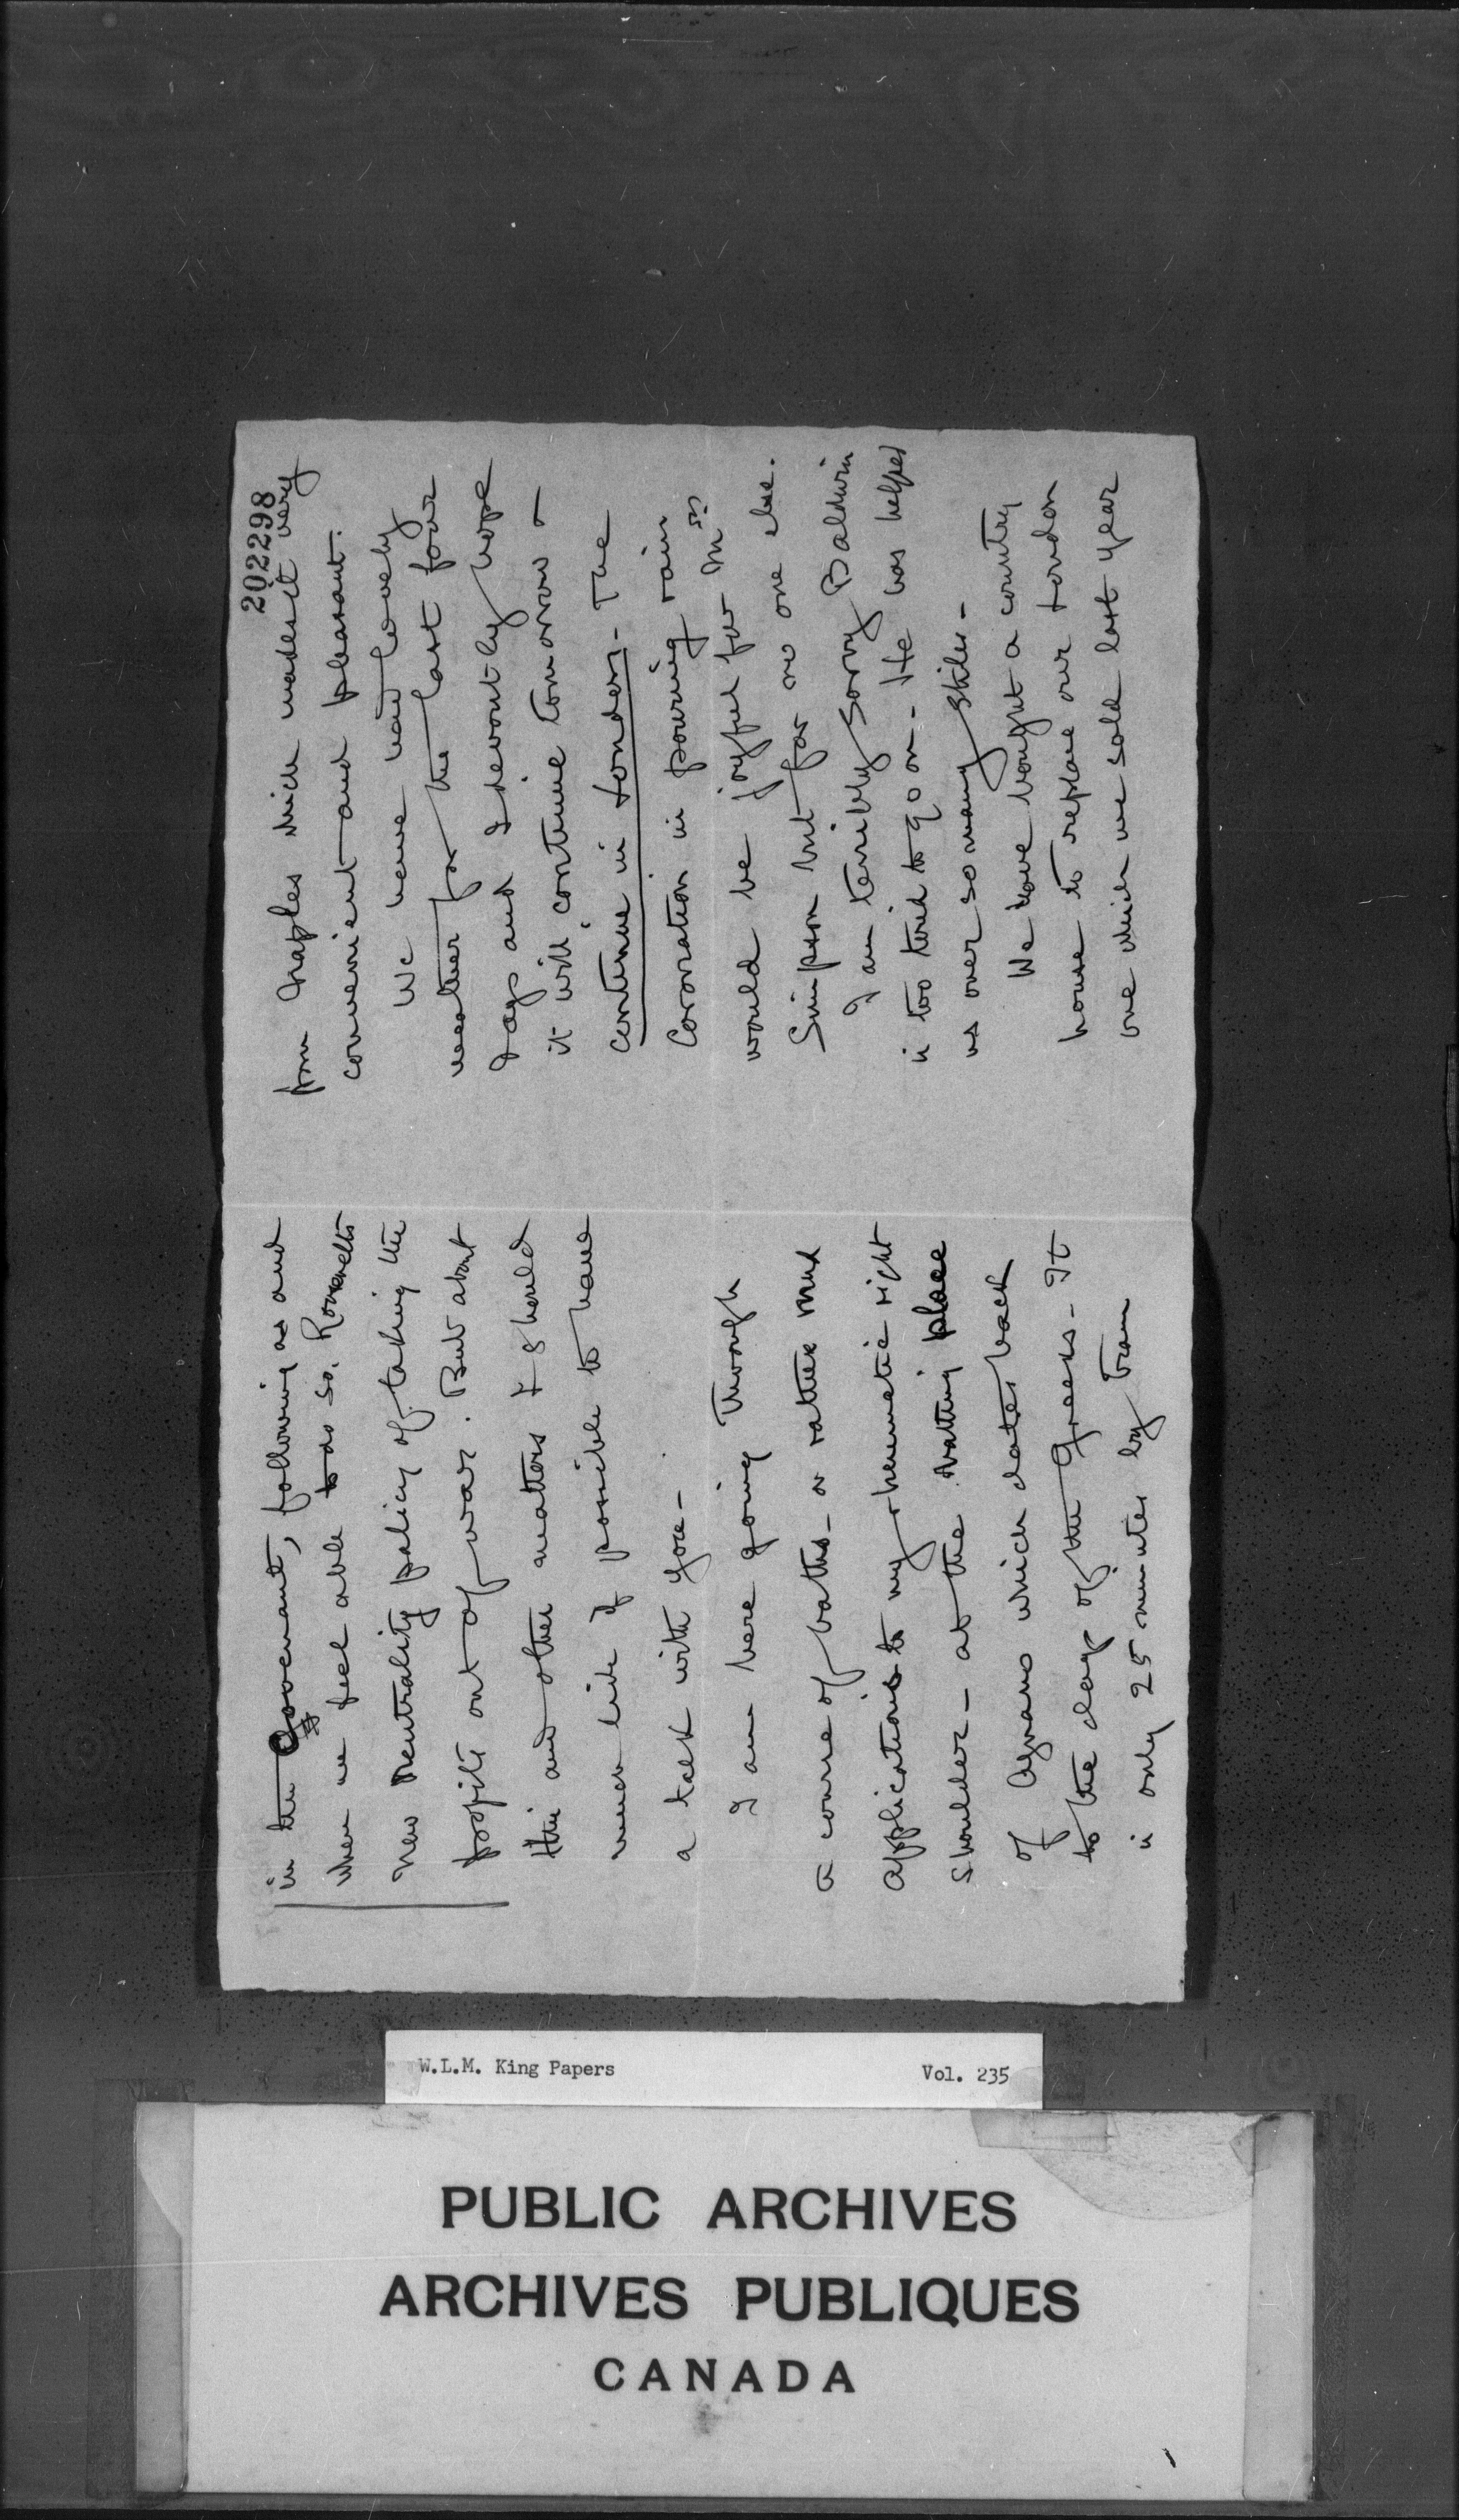 in the Covenant, following as and
when we feel able to do so. Roosevelts
new Neutrality policy of taking the
profits out of war. But about
this and other matters I should
much like if possible to have
a talk with you -
I am here going through
a course of baths - or rather mud
applications to my rheumatic right
shoulder - at the bathing place
of Agnano which dates back
to the days of the Greeks - It
is only 25 minutes by tram
202298
from Naples which makes it very
convenient and pleasant.
We have had lovely
weather for the last four
days and I devoutly hope
it will continue tomorrow &
continue in London - The
Coronation in pouring rain
would be joyful for Mrs.
Simpson but for no one else.
I am terribly sorry Baldwin
is too tired to go on - He has helped
us over so many stiles -
We have bought a country
house to replace our London
one which we sold last year
W.L.M. King Papers Vol. 235
PUBLIC ARCHIVES
ARCHIVES PUBLIQUES
CANADA